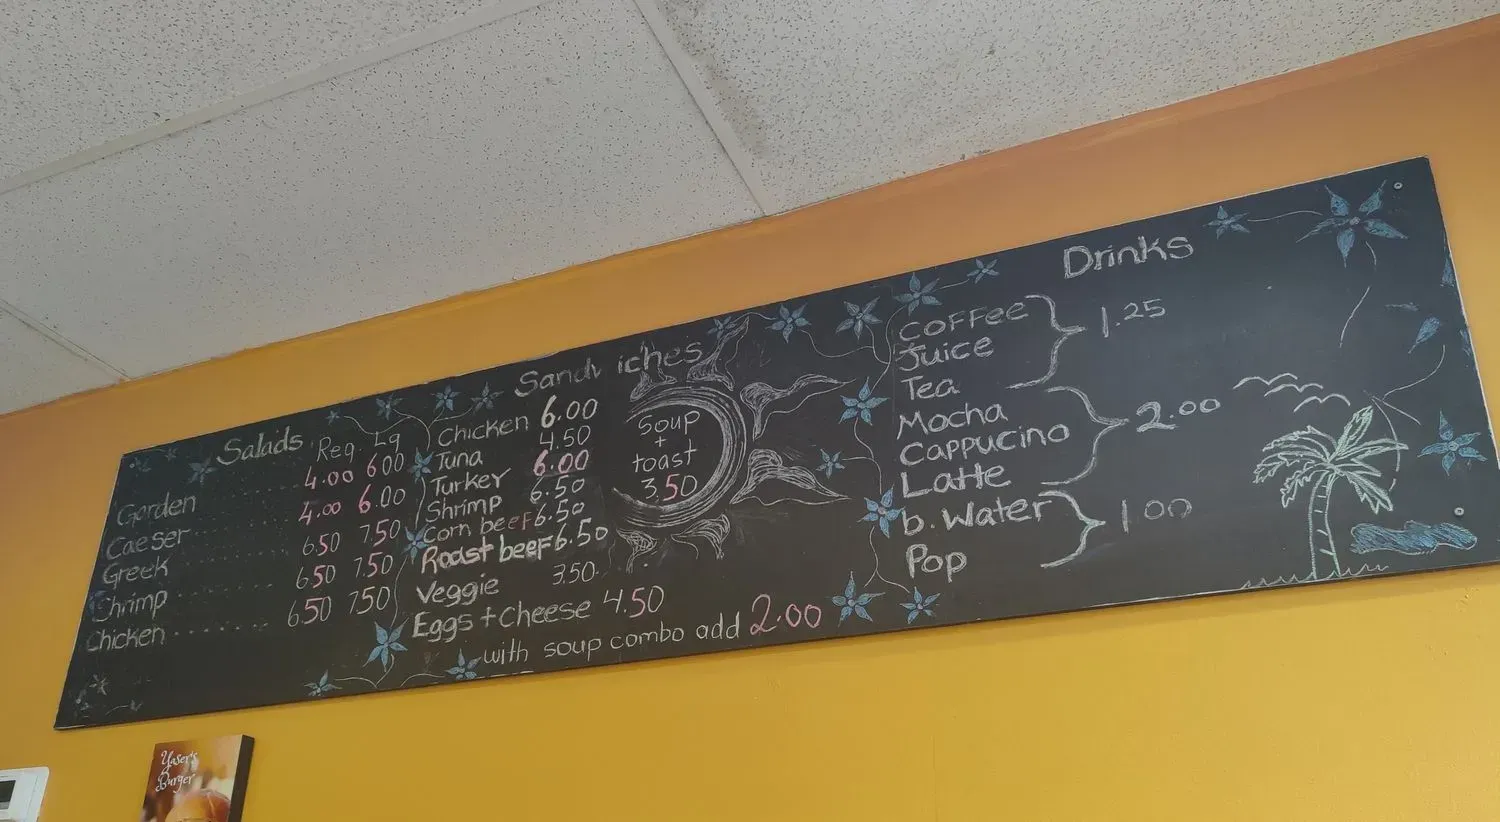 Salads Reg Lg
Garden 4.00 6.00
Caeser 4.00 6.00
Greek 6.50 7.50
Shrimp 6.50 7.50
Chicken 6.50 7.50
Sandwiches
Chicken 6.00
Tuna 4.50
Turkey 6.00
Shrimp 6.50
Corn beef 6.50
Roast beef 6.50
Veggie 3.50
Eggs + Cheese 4.50
with soup combo add 2.00
Soup
+
toast
3.50
Drinks
Coffee
Juice
Tea
1.25
Mocha
Cappucino
Latte
2.00
b. Water
Pop
1.00
Yaser's
Burger